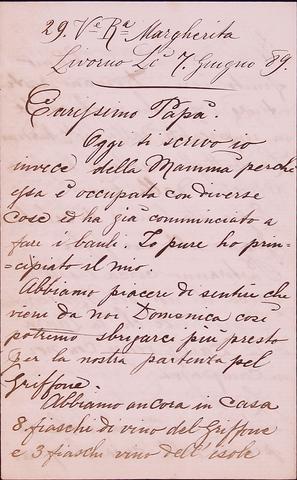 29. Vᵉ Rᵃ Margherita
Livorno Lì 7. Giugno 89.
Carissimo Papà.
Oggi ti scrivo io
invece della Mamma perchè
essa è occupata con diverse
cose e ha già comminciato a
fare i bauli. Io pure ho prin-
=cipiato il mio.
Abbiamo piacere di sentire che
vieni da noi Domenica così
potremo sbrigarci più presto
per la nostra partenza pel
Griffone.
Abbiamo ancora in casa
8 fiaschi di vino del Griffone
e 3 fiaschi vino dell'isole